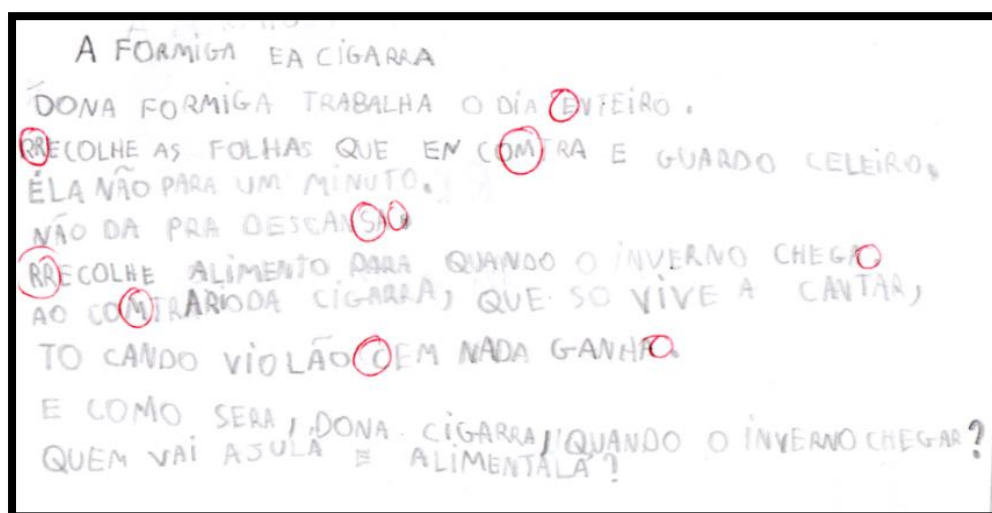 A FORMIGA EA CIGARRA
DONA FORMIGA TRABALHA O DIA ENTEIRO.
RRECOLHE AS FOLHAS QUE EN COMTRA E GUARDO CELEIRO.
ÉLA NÃO PARA UM MINUTO.
NÃO DA PRA DESCANSA.
RRECOLHE ALIMENTO PARA QUANDO O INVERNO CHEGA
AO COMTRARIODA CIGARRA, QUE SO VIVE A CANTAR,
TO CANDO VIOLÃO CEM NADA GANHA.
E COMO SERA, DONA CIGARRA, QUANDO O INVERNO CHEGAR?
QUEM VAI AJULA E ALIMENTALA?